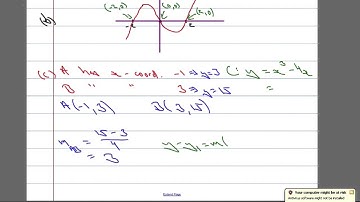 (b)
(-2,0) (0,0) (2,0)
-2 2
(c) A has x-coord. -1 ⇒ y=3 C: y = x³-4x
B " " 3 ⇒ y=15 =
A(-1,3) B(3,15)
m_AB = 15-3/4 y-y₁=m(
= 3
Your computer might be at risk
Antivirus software might not be installed